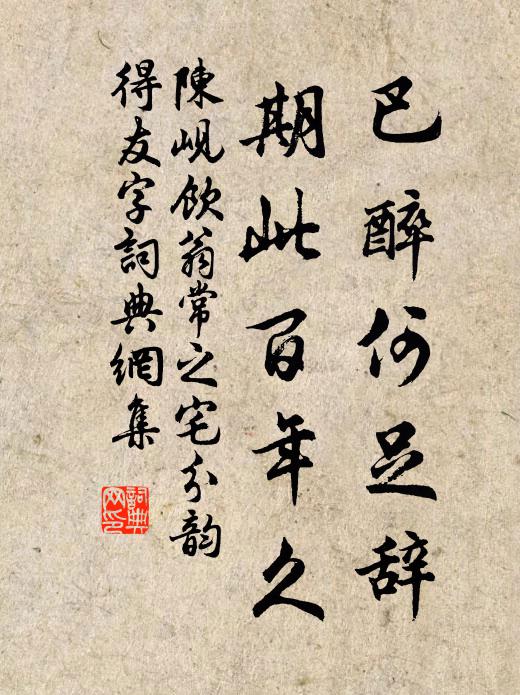 已醉何足辞
期此百年久
陳峴飲翁常之宅分韵
得友字詞典網集
詞典网印